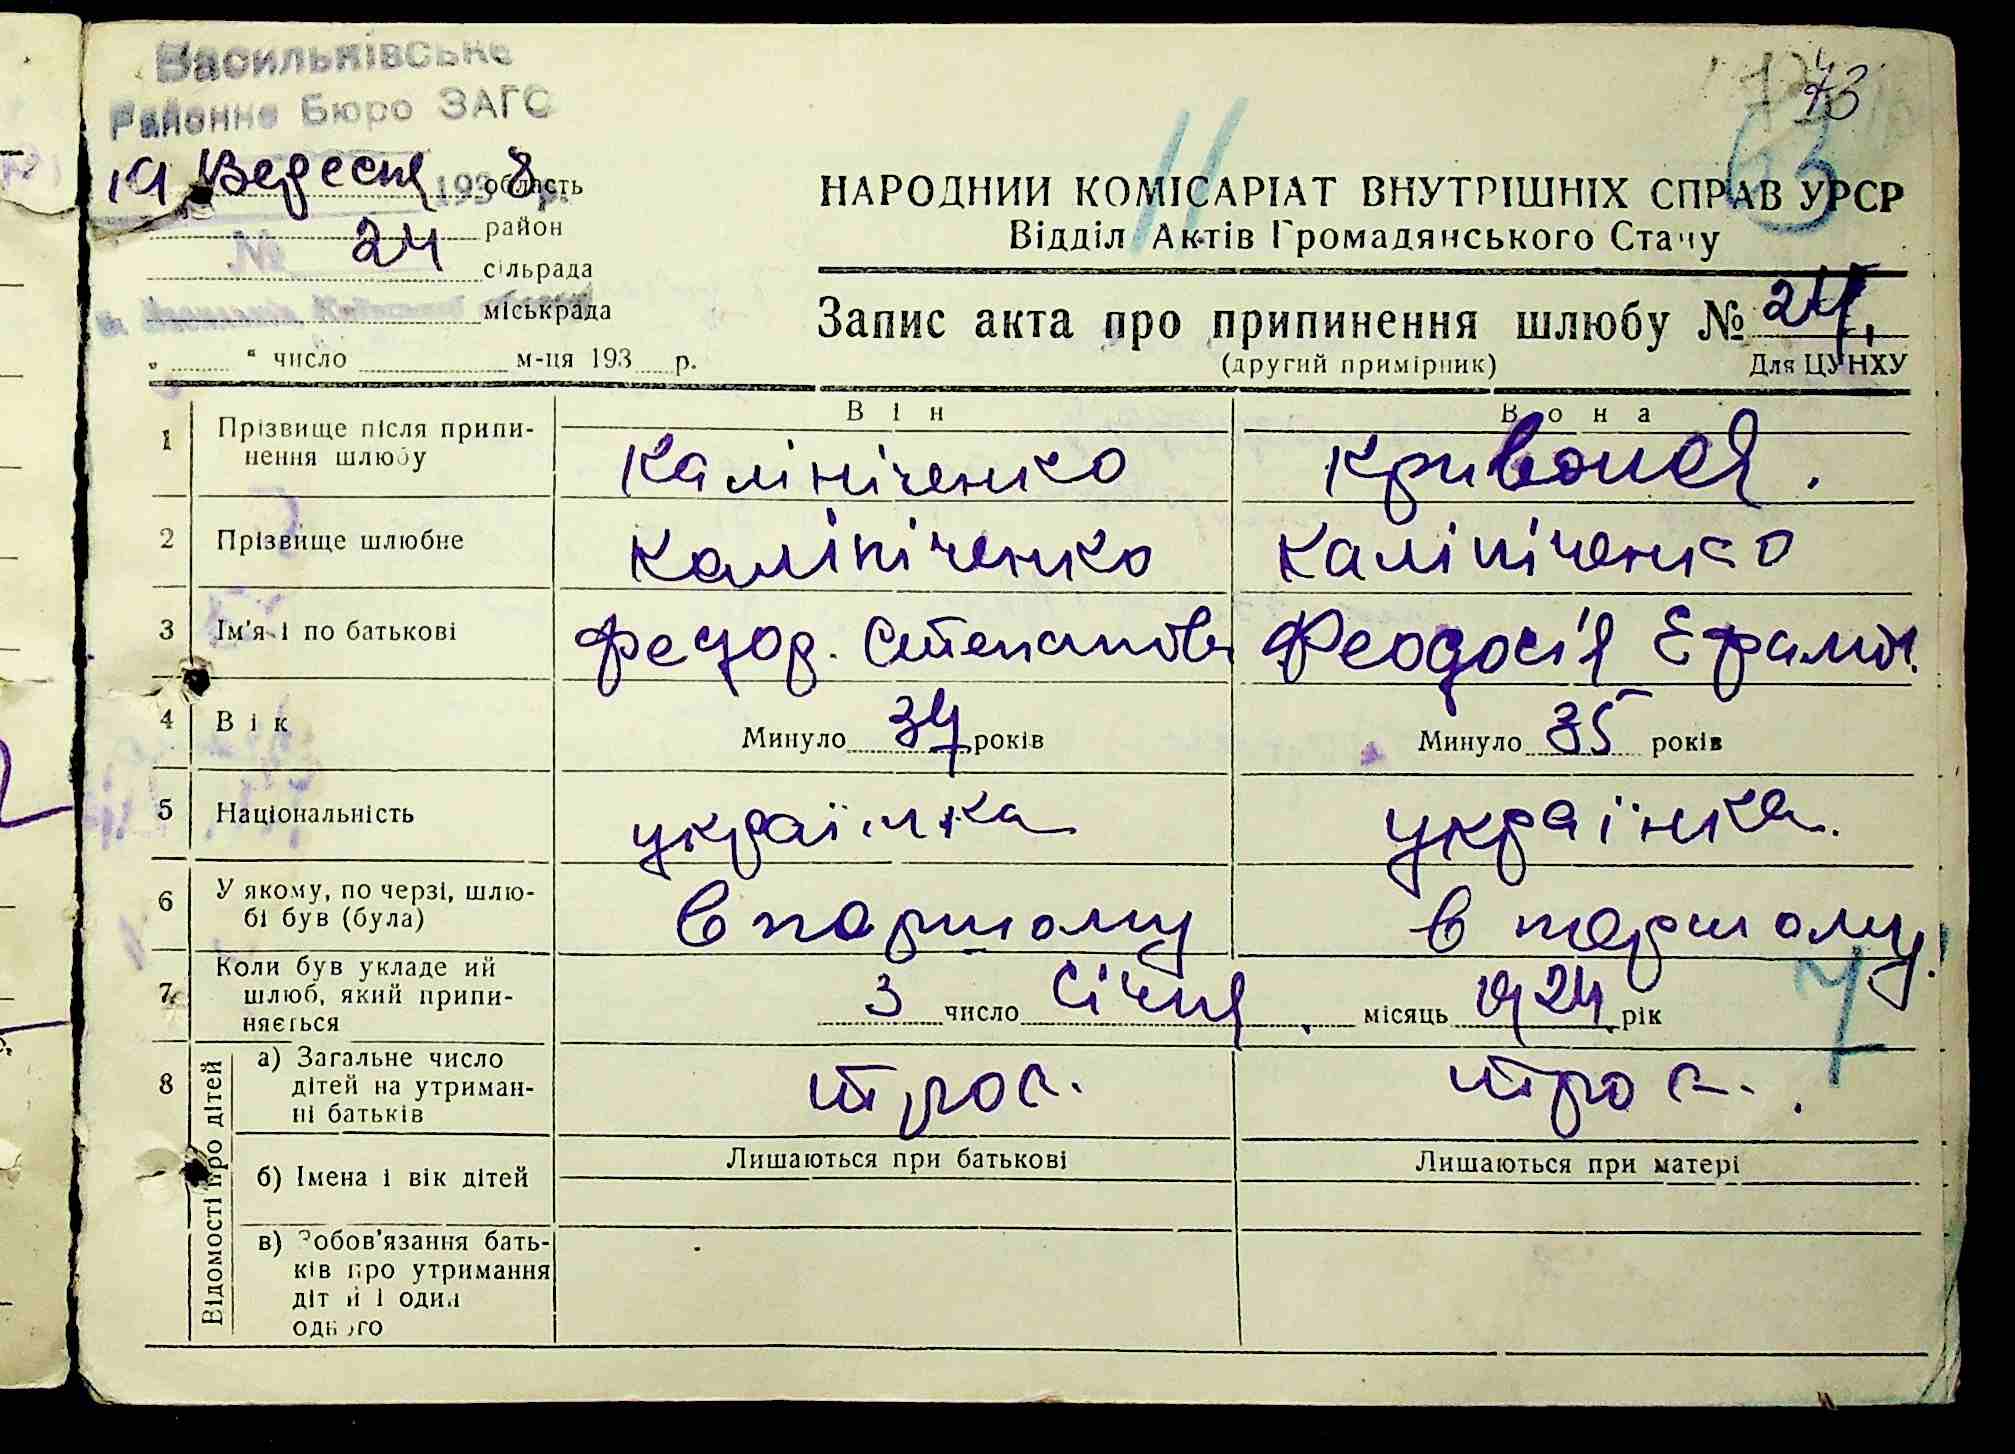 Васильківське
Районне Бюро ЗАГС
19 Вересня 1938 р.
область
район
№ 24
сільрада
міськрада
„ “ число м-ця 193 р.
73
63
11
НАРОДНИЙ КОМІСАРІАТ ВНУТРІШНІХ СПРАВ УРСР
Відділ Актів Громадянського Стану
Запис акта про припинення шлюбу № 24
(другий примірник) Для ЦУНХУ
Він Вона
1 Прізвище після припи-
нення шлюбу
Калініченко Кривошея.
2 Прізвище шлюбне Калініченко Калініченко
3 Ім'я і по батькові Федор. Степанов Феодосія Ефамов.
4 Вік Минуло 37 років Минуло 35 років
5 Національність українка українка.
6 У якому, по черзі, шлю-
бі був (була)
в першому в першому
7 Коли був укладений
шлюб, який припи-
няється
3 число Січня місяць 1924 рік
7
8 Відомості про дітей
а) Загальне число
дітей на утриман-
ні батьків
троє. троє.
Лишаються при батькові Лишаються при матері
б) Імена і вік дітей
в) Зобов'язання бать-
ків про утримання
дітей і один
одного